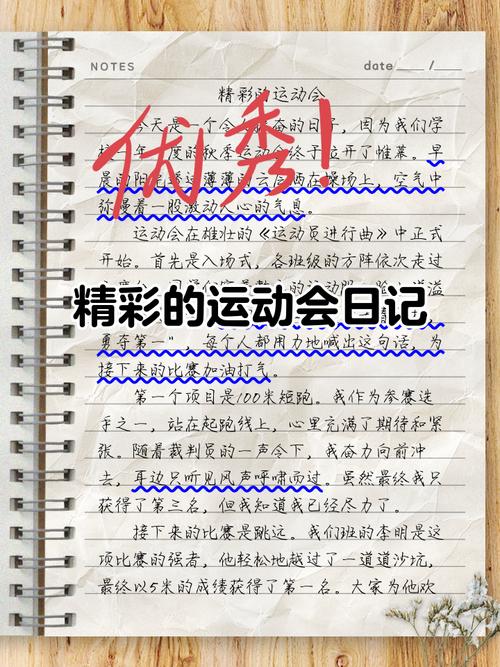 NOTES
date ___ / ___
精彩的运动会
优秀!
今天是一个令人 奋的日子，因为我们学
年 度的秋季运动会终于拉开了帷幕。早
晨的阳光透过薄薄的云层洒在操场上，空气中
弥漫着一股激动人心的气息。
运动会在雄壮的《运动员进行曲》中正式
开始。首先是入场式，各班级的方阵依次走过
精彩的运动会日记
勇夺第一"，每个人都用力地喊出这句话，为
接下来的比赛加油打气。
第一个项目是100米短跑。我作为参赛选
手之一，站在起跑线上，心里充满了期待和紧
张。随着裁判员的一声令下，我奋力向前冲
去，耳边只听见风声呼啸而过。虽然最终我只
获得了第三名，但我知道我已经尽力了。
接下来的比赛是跳远。我们班的李明是这
项比赛的强者，他轻松地越过了一道道沙坑，
最终以5米的成绩获得了第一名。大家为他欢